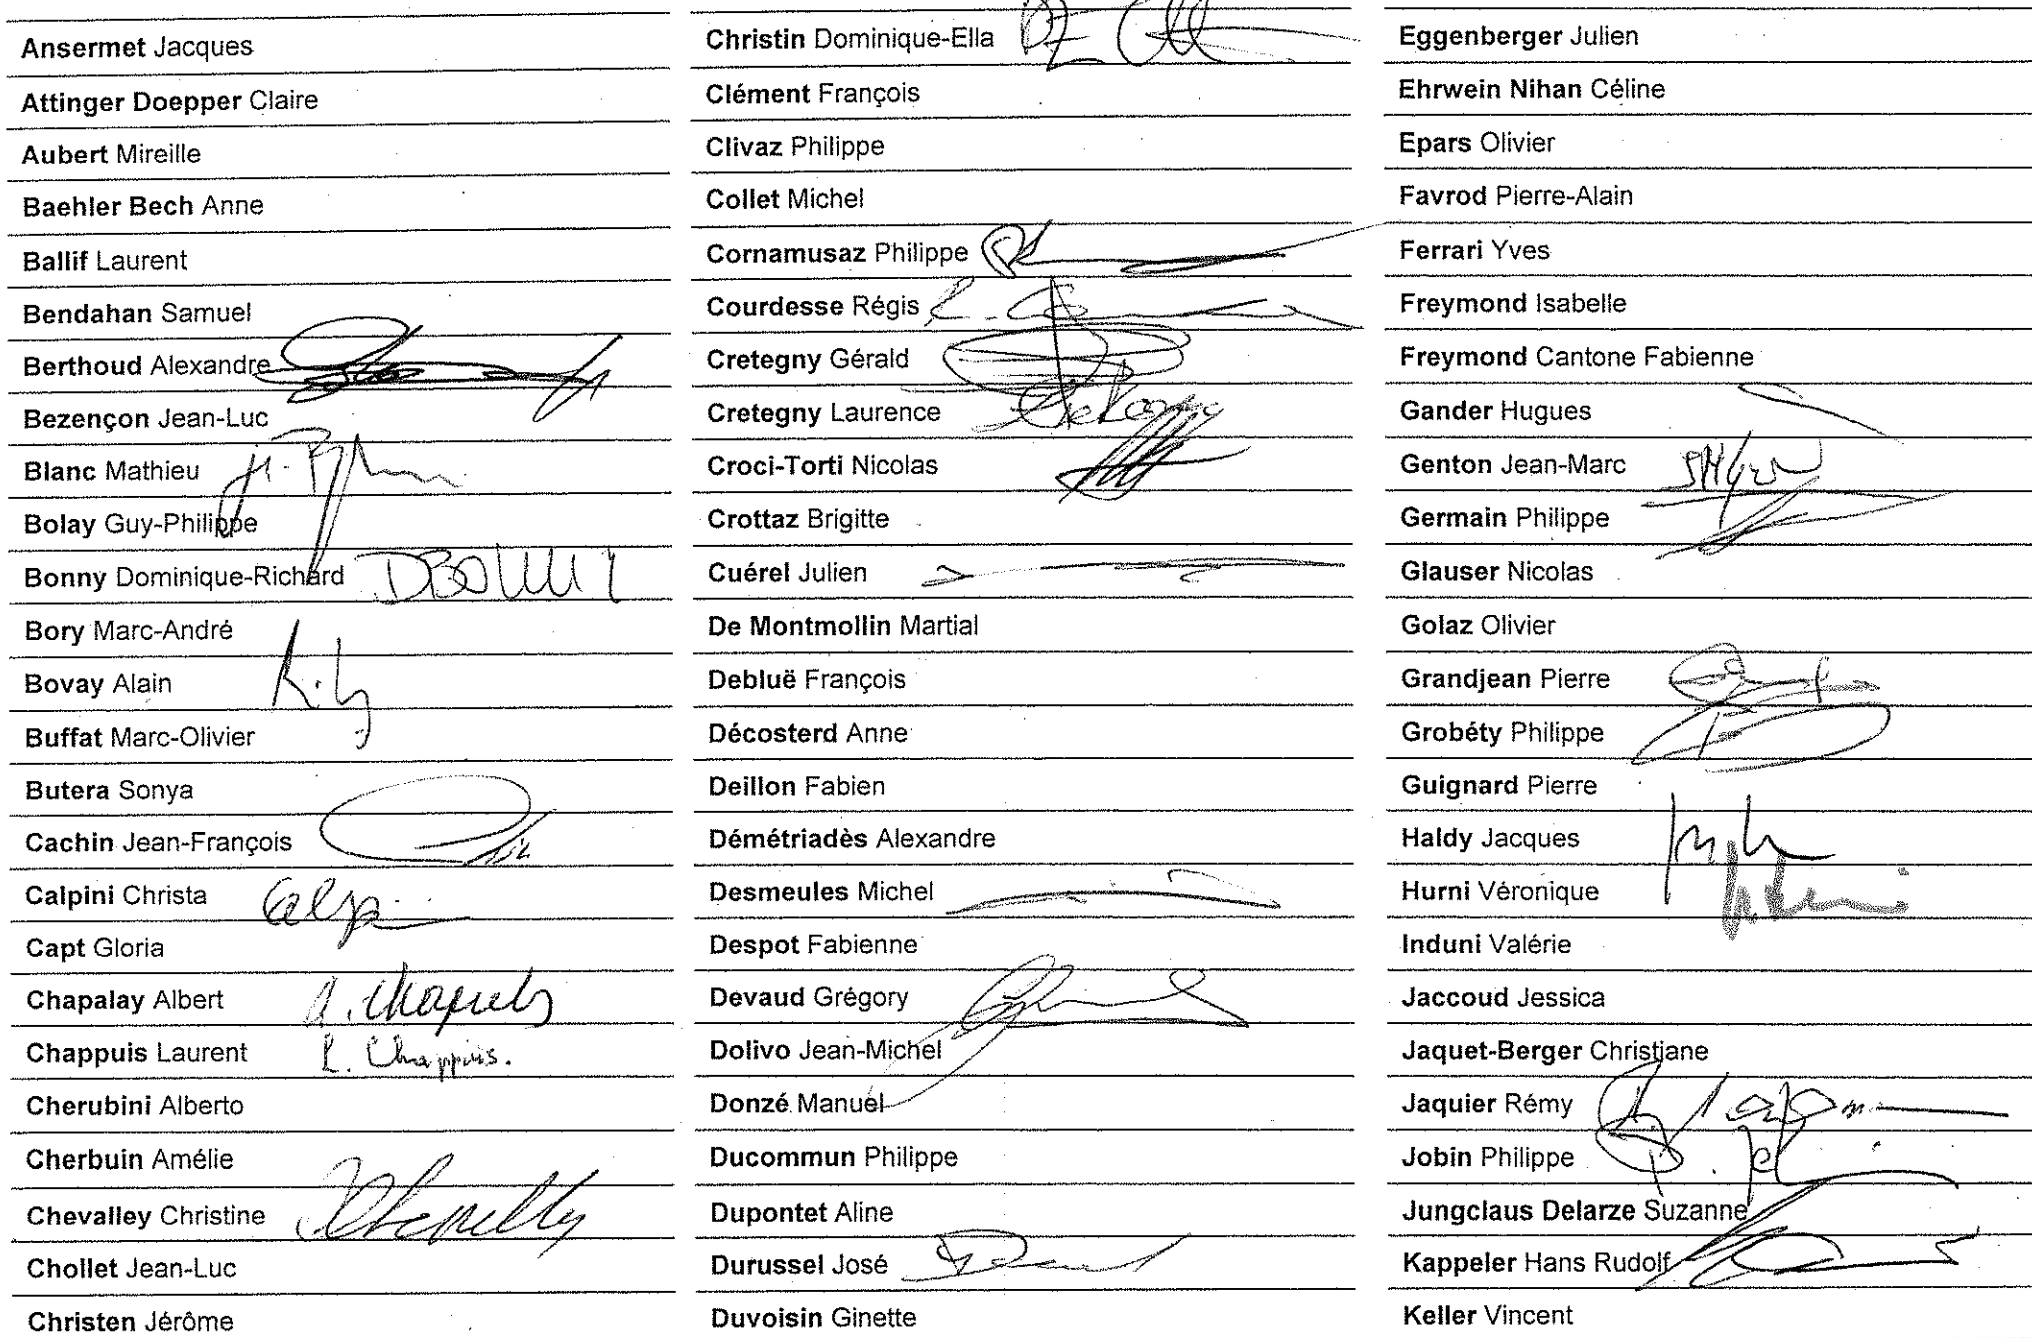 Ansermet Jacques
Attinger Doepper Claire
Aubert Mireille
Baehler Bech Anne
Ballif Laurent
Bendahan Samuel
Berthoud Alexandre
Bezençon Jean-Luc
Blanc Mathieu
Bolay Guy-Philippe
Bonny Dominique-Richard DBONNY
Bory Marc-André
Bovay Alain
Buffat Marc-Olivier
Butera Sonya
Cachin Jean-François
Calpini Christa
Capt Gloria
Chapalay Albert
Chappuis Laurent L. Chappuis.
Cherubini Alberto
Cherbuin Amélie
Chevalley Christine
Chollet Jean-Luc
Christen Jérôme
Christin Dominique-Ella
Clément François
Clivaz Philippe
Collet Michel
Cornamusaz Philippe
Courdesse Régis
Cretegny Gérald
Cretegny Laurence
Croci-Torti Nicolas
Crottaz Brigitte
Cuérel Julien
De Montmollin Martial
Debluë François
Décosterd Anne
Deillon Fabien
Démétriadès Alexandre
Desmeules Michel
Despot Fabienne
Devaud Grégory
Dolivo Jean-Michel
Donzé Manuel
Ducommun Philippe
Dupontet Aline
Durussel José
Duvoisin Ginette
Eggenberger Julien
Ehrwein Nihan Céline
Epars Olivier
Favrod Pierre-Alain
Ferrari Yves
Freymond Isabelle
Freymond Cantone Fabienne
Gander Hugues
Genton Jean-Marc
Germain Philippe
Glauser Nicolas
Golaz Olivier
Grandjean Pierre
Grobéty Philippe
Guignard Pierre
Haldy Jacques
Hurni Véronique
Induni Valérie
Jaccoud Jessica
Jaquet-Berger Christiane
Jaquier Rémy
Jobin Philippe
Jungclaus Delarze Suzanne
Kappeler Hans Rudolf
Keller Vincent